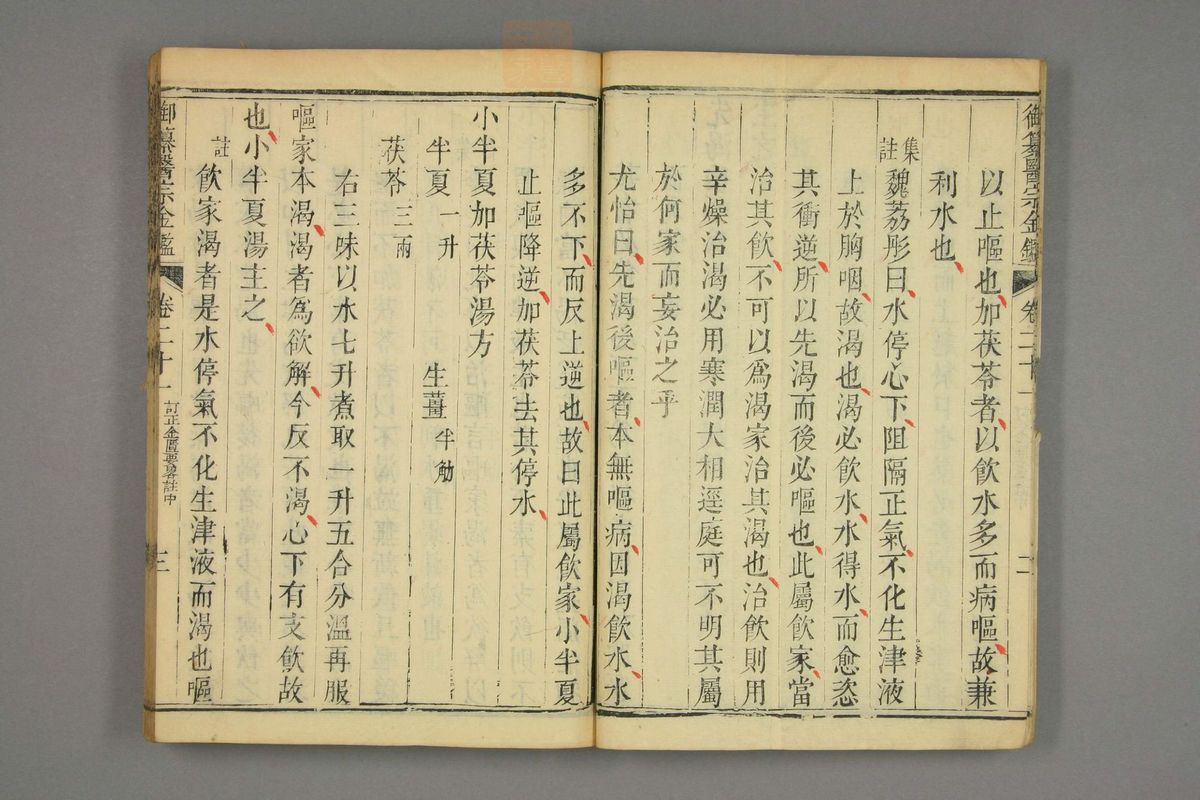 御纂醫宗金鑑 卷二十一 二
以止嘔也加茯苓者以飲水多而病嘔故兼
利水也
集註 魏荔彤曰水停心下阻隔正氣不化生津液
上於胸咽故渴也渴必飲水水得水而愈恣
其衝逆所以先渴而後必嘔也此屬飲家當
治其飲不可以為渴家治其渴也治飲則用
辛燥治渴必用寒潤大相逕庭可不明其屬
於何家而妄治之乎
尤怡曰先渴後嘔者本無嘔病因渴飲水水
多不下而反上逆也故曰此屬飲家小半夏
止嘔降逆加茯苓去其停水
小半夏加茯苓湯方
半夏一升 生薑半觔
茯苓三兩
右三味以水七升煮取一升五合分溫再服
嘔家本渴渴者為欲解今反不渴心下有支飲故
也小半夏湯主之
註 飲家渴者是水停氣不化生津液而渴也嘔
御纂醫宗金鑑 卷二十一 訂正金匱要畧註中 三